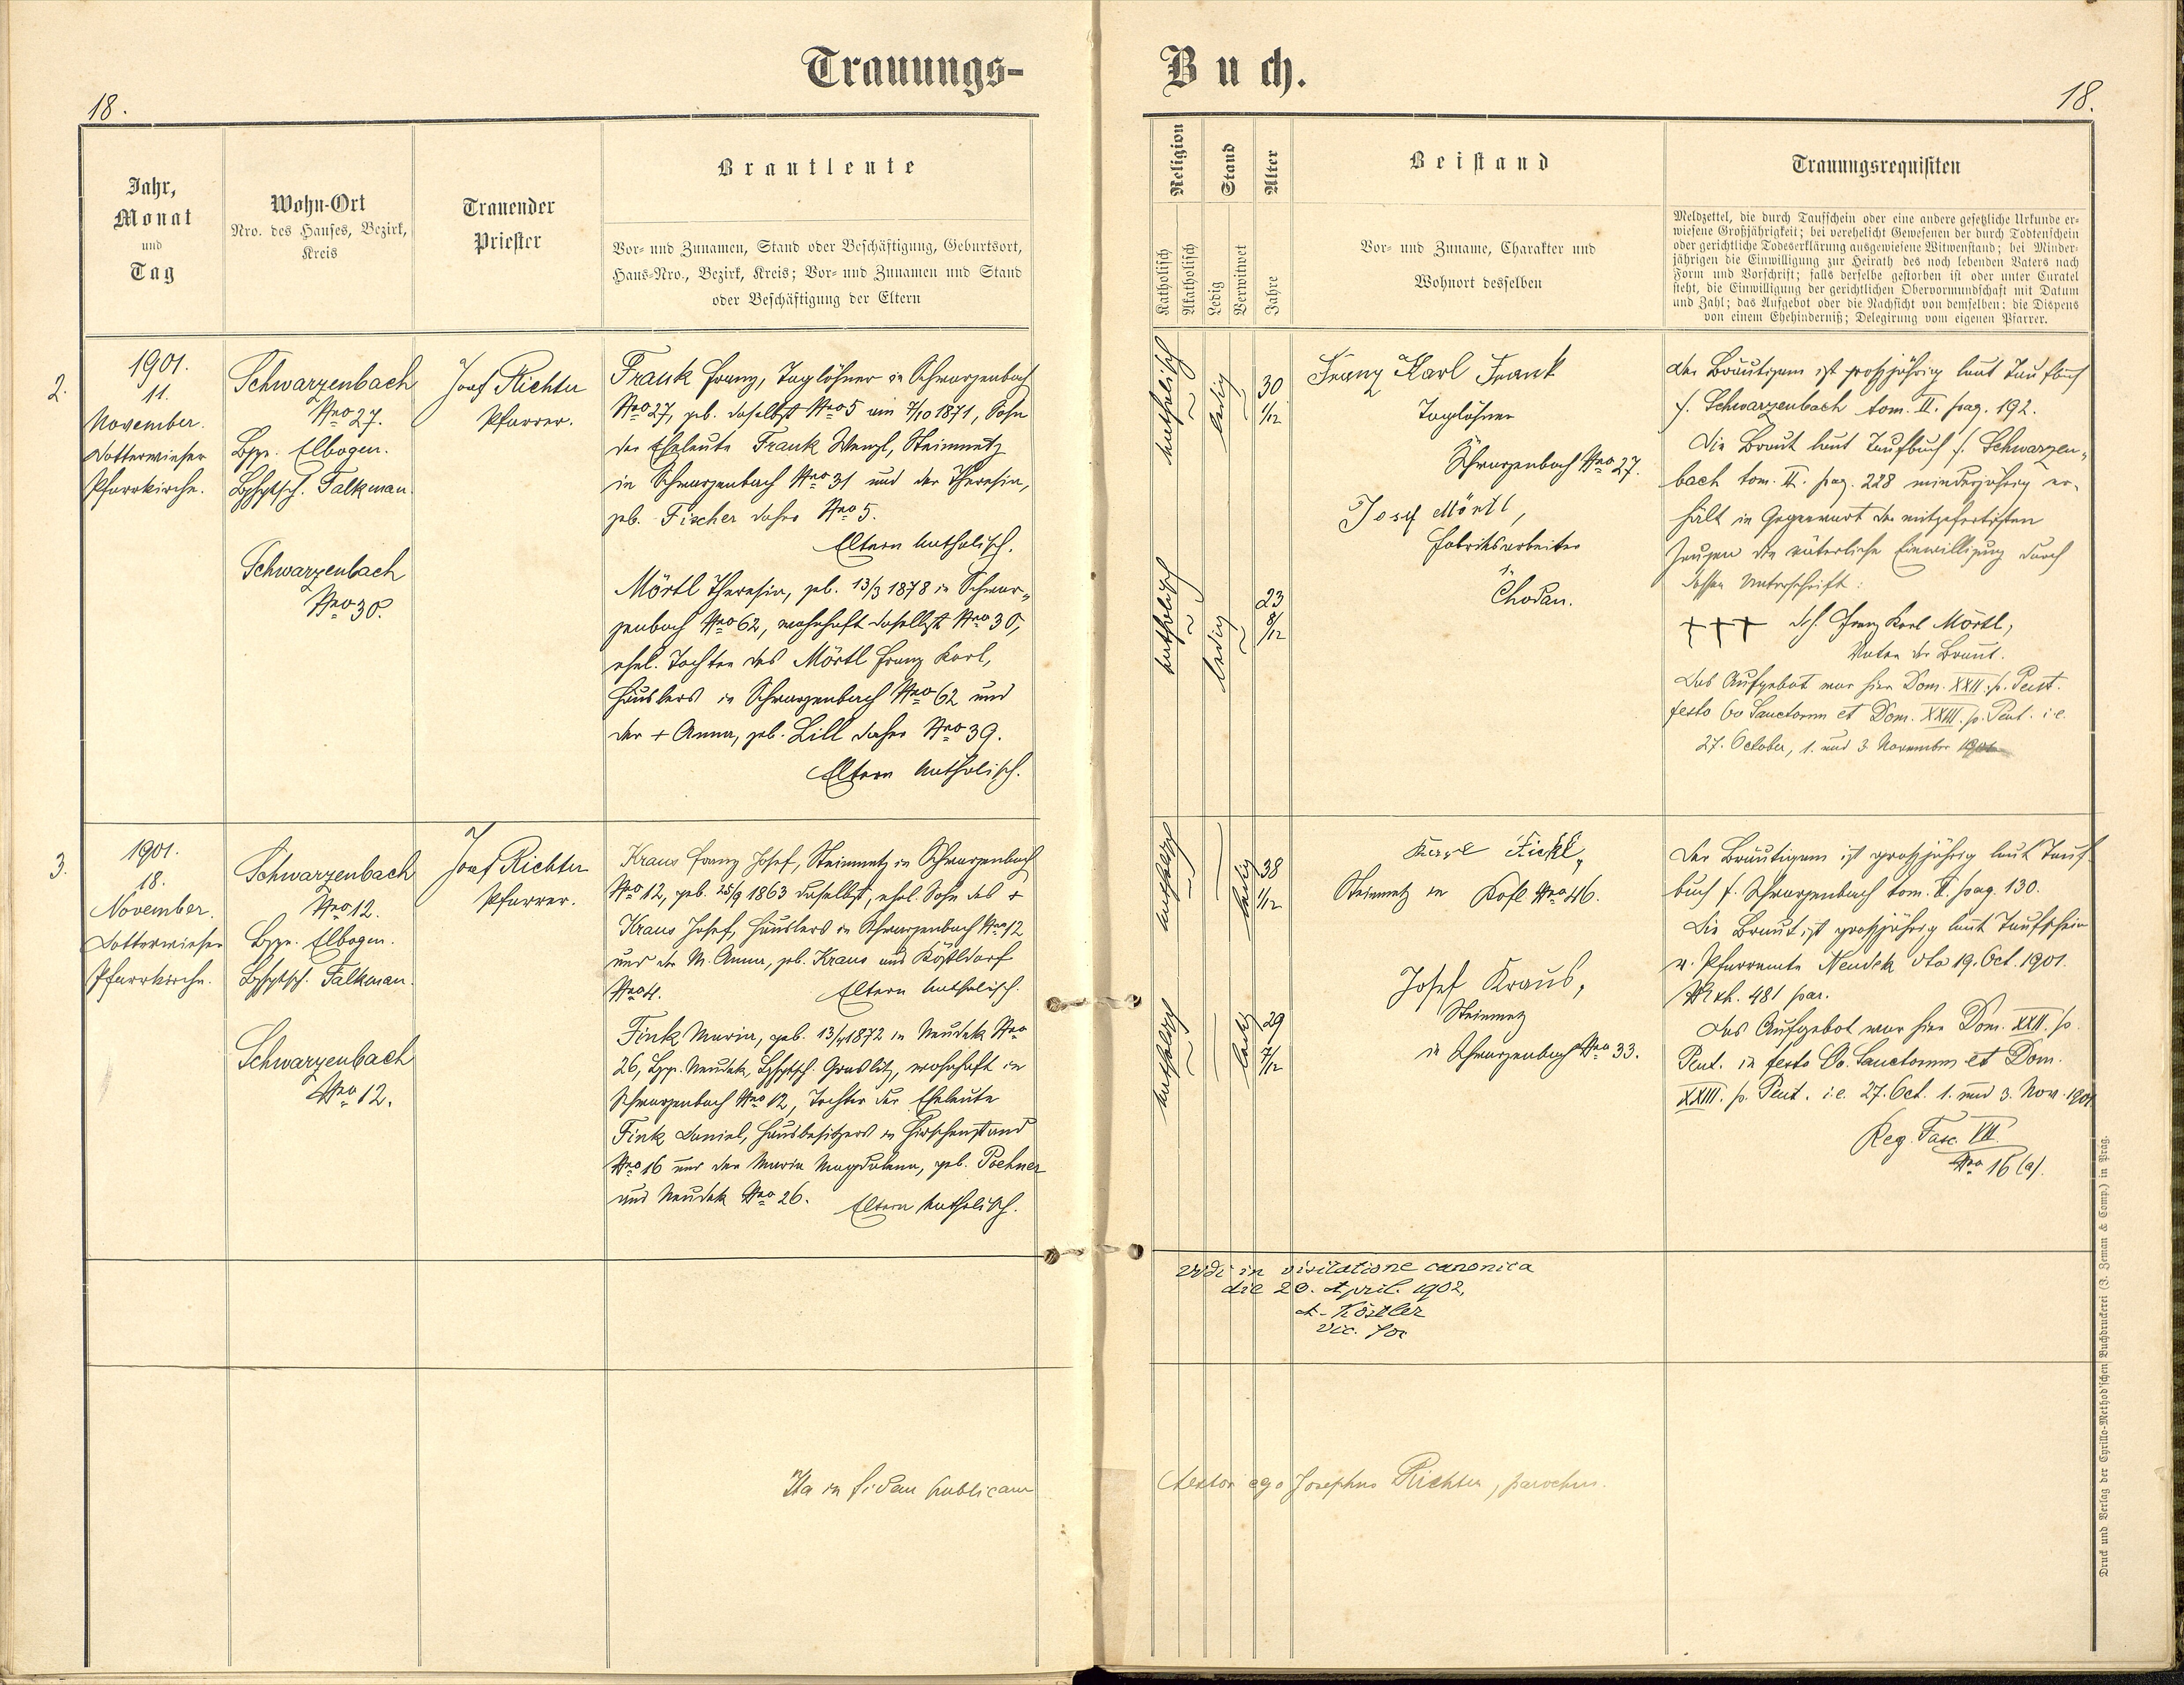 Trauungs-
Buch.
18.
18.
Jahr,
Monat
und
Tag
Wohn-Ort
Nro. des Hauses, Bezirk,
Kreis
Trauender
Priester
Brautleute
Vor- und Zunamen, Stand oder Beschäftigung, Geburtsort,
Haus-Nro., Bezirk, Kreis; Vor- und Zunamen und Stand
oder Beschäftigung der Eltern
Religion
Katholisch
Akatholisch
Stand
Ledig
Verwitwet
Alter
Jahre
Beistand
Vor- und Zuname, Charakter und
Wohnort desselben
Trauungsrequisiten
Meldzettel, die durch Taufschein oder eine andere gesetzliche Urkunde er-
wiesene Großjährigkeit; bei verehelicht Gewesenen der durch Todtenschein
oder gerichtliche Todeserklärung ausgewiesene Witwenstand; bei Minder-
jährigen die Einwilligung zur Heirath des noch lebenden Vaters nach
Form und Vorschrift; falls derselbe gestorben ist oder unter Curatel
steht, die Einwilligung der gerichtlichen Obervormundschaft mit Datum
und Zahl; das Aufgebot oder die Nachsicht von demselben; die Dispens
von einem Ehehinderniß; Delegirung vom eigenen Pfarrer.
2.
1901.
11.
November.
Dotterwieser
Pfarrkirche.
Schwarzenbach
Nro 27.
Bzr. Elbogen.
Bzhptsch. Falkenau.
Schwarzenbach
Nro 30.
Josef Richter
Pfarrer.
Frank Franz, Taglöhner in Schwarzenbach
Nro 27, geb. daselbst Nro 5 am 7/10 1871, Sohn
der Eheleute Frank Wenzl, Steinmetz
in Schwarzenbach Nro 31 und der Theresia,
geb. Fischer daher Nro 5.
Eltern katholisch.
Mörtl Theresia, geb. 13/3 1878 in Schwar-
zenbach Nro 62, wohnhaft daselbst Nro 30,
ehel. Tochter des Mörtl Franz Karl,
Häuslers in Schwarzenbach Nro 62 und
der + Anna, geb. Lill daher Nro 39.
Eltern katholisch.
katholisch
ledig
30
1/12
katholisch
ledig
23
8/12
Franz Karl Frank
Taglöhner
Schwarzenbach Nro 27.
Josef Mörtl,
Fabriksarbeiter
in
Chodau.
Der Bräutigam ist großjährig laut Taufbuch
f. Schwarzenbach tom. II. pag. 192.
Die Braut laut Taufbuch f. Schwarzen-
bach tom. II. pag. 228 minderjährig er-
hält in Gegenwart der mitgefertigten
Zeugen die väterliche Einwilligung durch
dessen Unterschrift:
+++ Franz Karl Mörtl,
Vater der Braut.
Das Aufgebot war hier Dom. XXII. p. Pent.
festo Oo Sanctorum et Dom. XXIII. p. Pent. i. e.
27. October, 1. und 3 November 1901
3.
1901.
18.
November.
Dotterwieser
Pfarrkirche.
Schwarzenbach
Nro 12.
Bzr. Elbogen.
Bzhptsch. Falkenau.
Schwarzenbach
Nro 12.
Josef Richter
Pfarrer.
Kraus Franz Josef, Steinmetz in Schwarzenbach
Nro 12, geb. 25/9 1863 daselbst, ehel. Sohn des +
Kraus Josef, Häuslers in Schwarzenbach Nro 12
und der M. Anna, geb. Kraus aus Köstldorf
Nro 4. Eltern katholisch.
Fink Maria, geb. 13/4 1872 in Neudek Nro
26, Bzr. Neudek, Bzhptsch. Graslitz, wohnhaft in
Schwarzenbach Nro 12, Tochter der Eheleute
Fink Daniel, Hausbesitzers in Hirschenstand
Nro 16 und der Maria Magdalena, geb. Pochner
aus Neudek Nro 26. Eltern katholisch.
katholisch
ledig
38
1/12
katholisch
ledig
29
7/12
Karl Fickl,
Steinmetz in Kofl Nro 46.
Josef Kraus,
Steinmetz
in Schwarzenbach Nro 33.
Der Bräutigam ist großjährig laut Tauf-
buch f. Schwarzenbach tom. II. pag. 130.
Die Braut ist großjährig laut Taufschein
v. Pfarramte Neudek dto 19. Oct. 1901.
481 par.
Das Aufgebot war hier Dom. XXII. p.
Pent. in festo Oo. Sanctorum et Dom.
XXIII. p. Pent. i. e. 27. Oct. 1. und 3. Nov. 1901.
Reg. Fasc. VII.
Nro 16 (a).
Vidi in visitatione canonica
die 20. April. 1902,
A. Köstler
vic. for
Ita in fidem publicam
testor ego Josephus Richter, parochus.
Druck und Verlag der Cyrillo-Method'schen Buchdruckerei (J. Zeman & Comp.) in Prag.